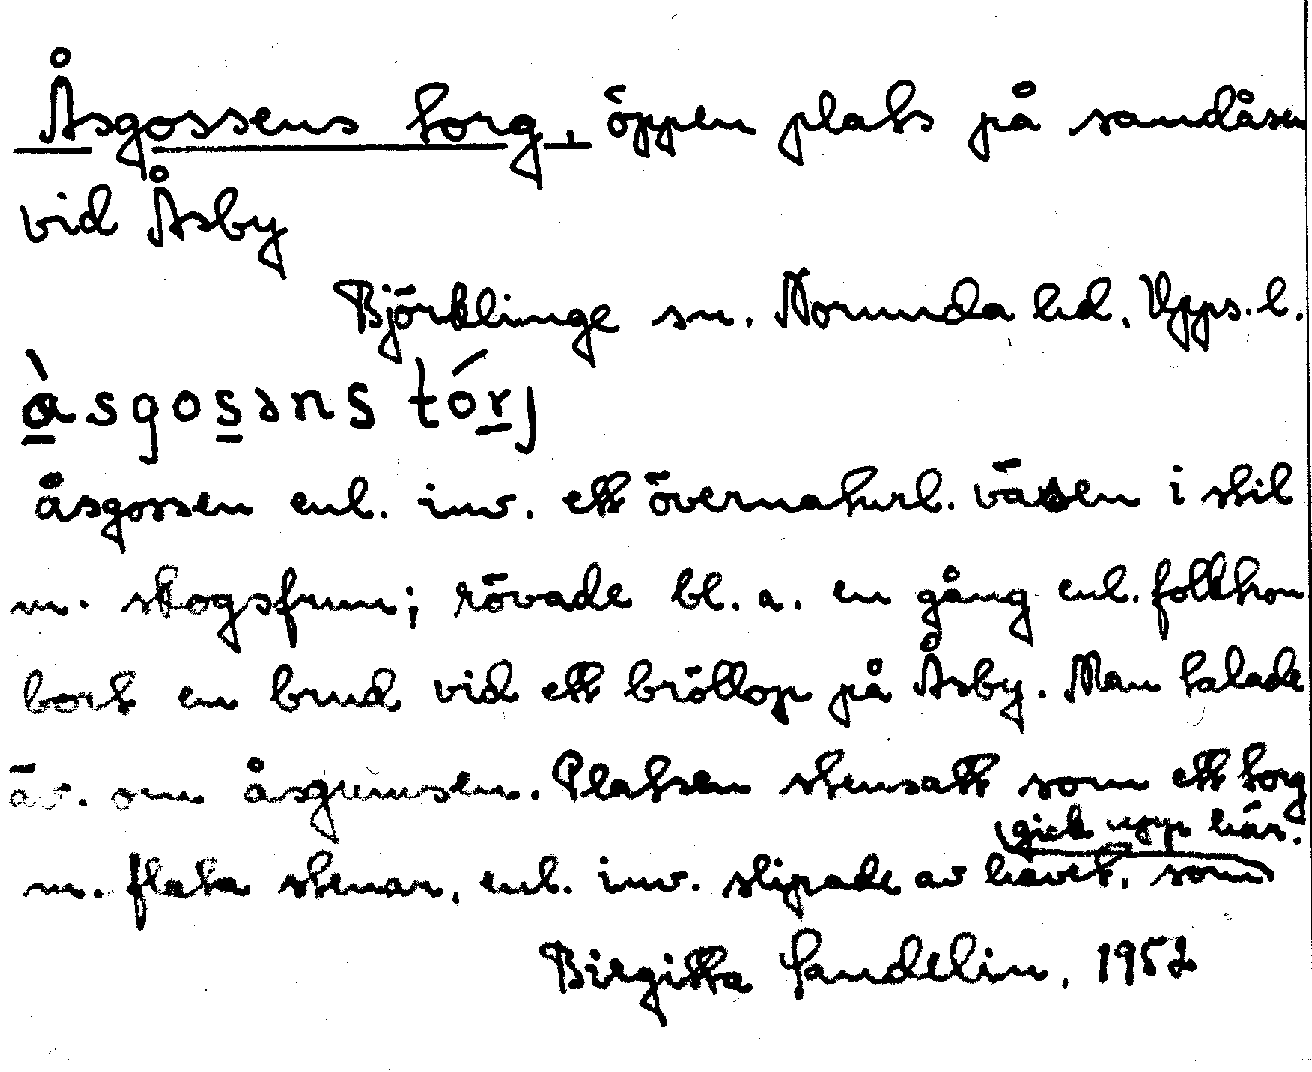 Åsgossens torg, öppen plats på sandåsen
vid Åsby
Björklinge sn. Norunda hd. Upps. l.
àsgosəns tórj
åsgossen enl. inv. ett övernaturl. väsen i stil
m. skogsfrun; rövade bl. a. en gång enl. folktron
bort en brud vid ett bröllop på Åsby. Man talade
äv. om åsgumsen. Platsen stensatt som ett torg
gick upp här.
m. flata stenar, enl. inv. slipade av havet, som
Birgitta Sandelin, 1952